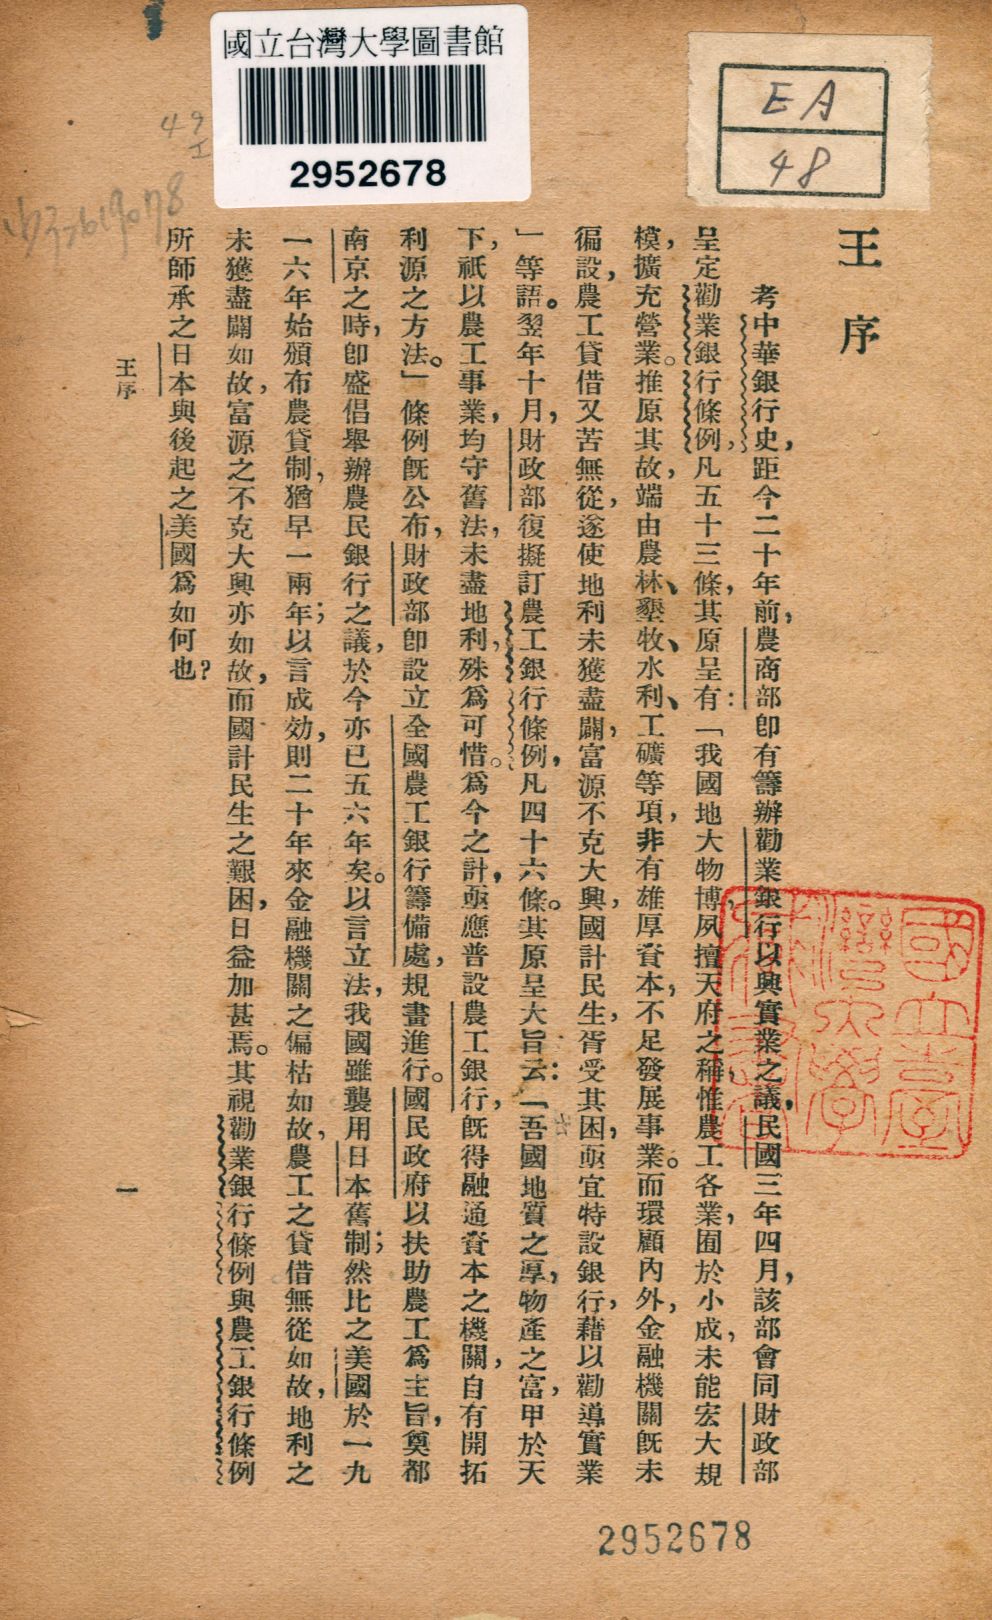 國立台灣大學圖書館
2952678
EA
48
王序
考中華銀行史，距今二十年前，農商部卽有籌辦勸業銀行以興實業之議，民國三年四月，該部會同財政部
呈定勸業銀行條例，凡五十三條，其原呈有：「我國地大物博，夙擅天府之稱，惟農工各業，囿於小成，未能宏大規
模，擴充營業。推原其故，端由農林、墾牧、水利、工礦等項，非有雄厚資本，不足發展事業。而環顧內外，金融機關旣未
徧設，農工貸借又苦無從，遂使地利未獲盡闢，富源不克大興，國計民生，胥受其困，亟宜特設銀行，藉以勸導實業
」等語。翌年十月，財政部復擬訂農工銀行條例，凡四十六條。其原呈大旨云：「吾國地質之厚，物產之富，甲於天
下，祇以農工事業，均守舊法，未盡地利，殊爲可惜。爲今之計，亟應普設農工銀行，旣得融通資本之機關，自有開拓
利源之方法。」條例旣公布，財政部卽設立全國農工銀行籌備處，規畫進行。國民政府以扶助農工爲主旨，奠都
南京之時，卽盛倡舉辦農民銀行之議，於今亦已五六年矣。以言立法，我國雖襲用日本舊制；然比之美國於一九
一六年始頒布農貸制，猶早一兩年；以言成効，則二十年來金融機關之偏枯如故，農工之貸借無從如故，地利之
未獲盡闢如故，富源之不克大興亦如故，而國計民生之艱困，日益加甚焉。其視勸業銀行條例與農工銀行條例
所師承之日本與後起之美國爲如何也？
王序
一
國立臺灣大學圖書章
2952678